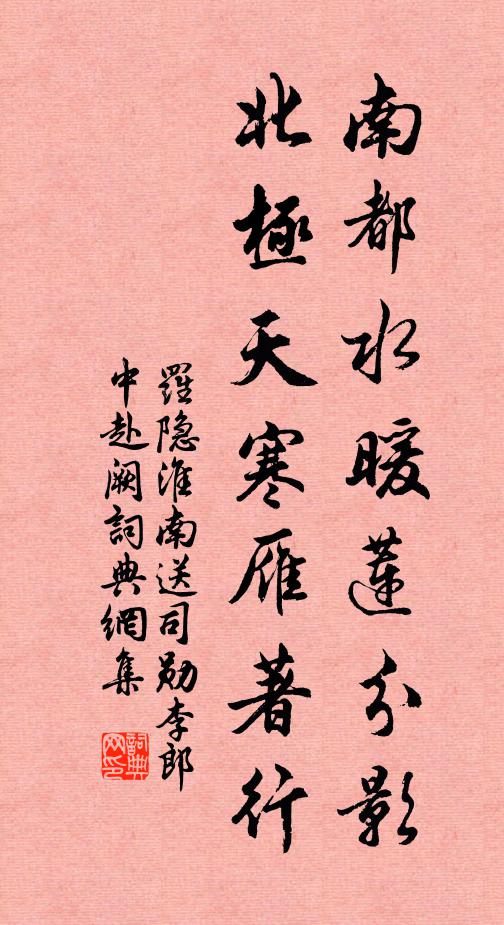 南都水暖蓮分影
北極天寒雁著行
羅隐淮南送司勋李郎
中赴阙詞典網集
詞典
网印